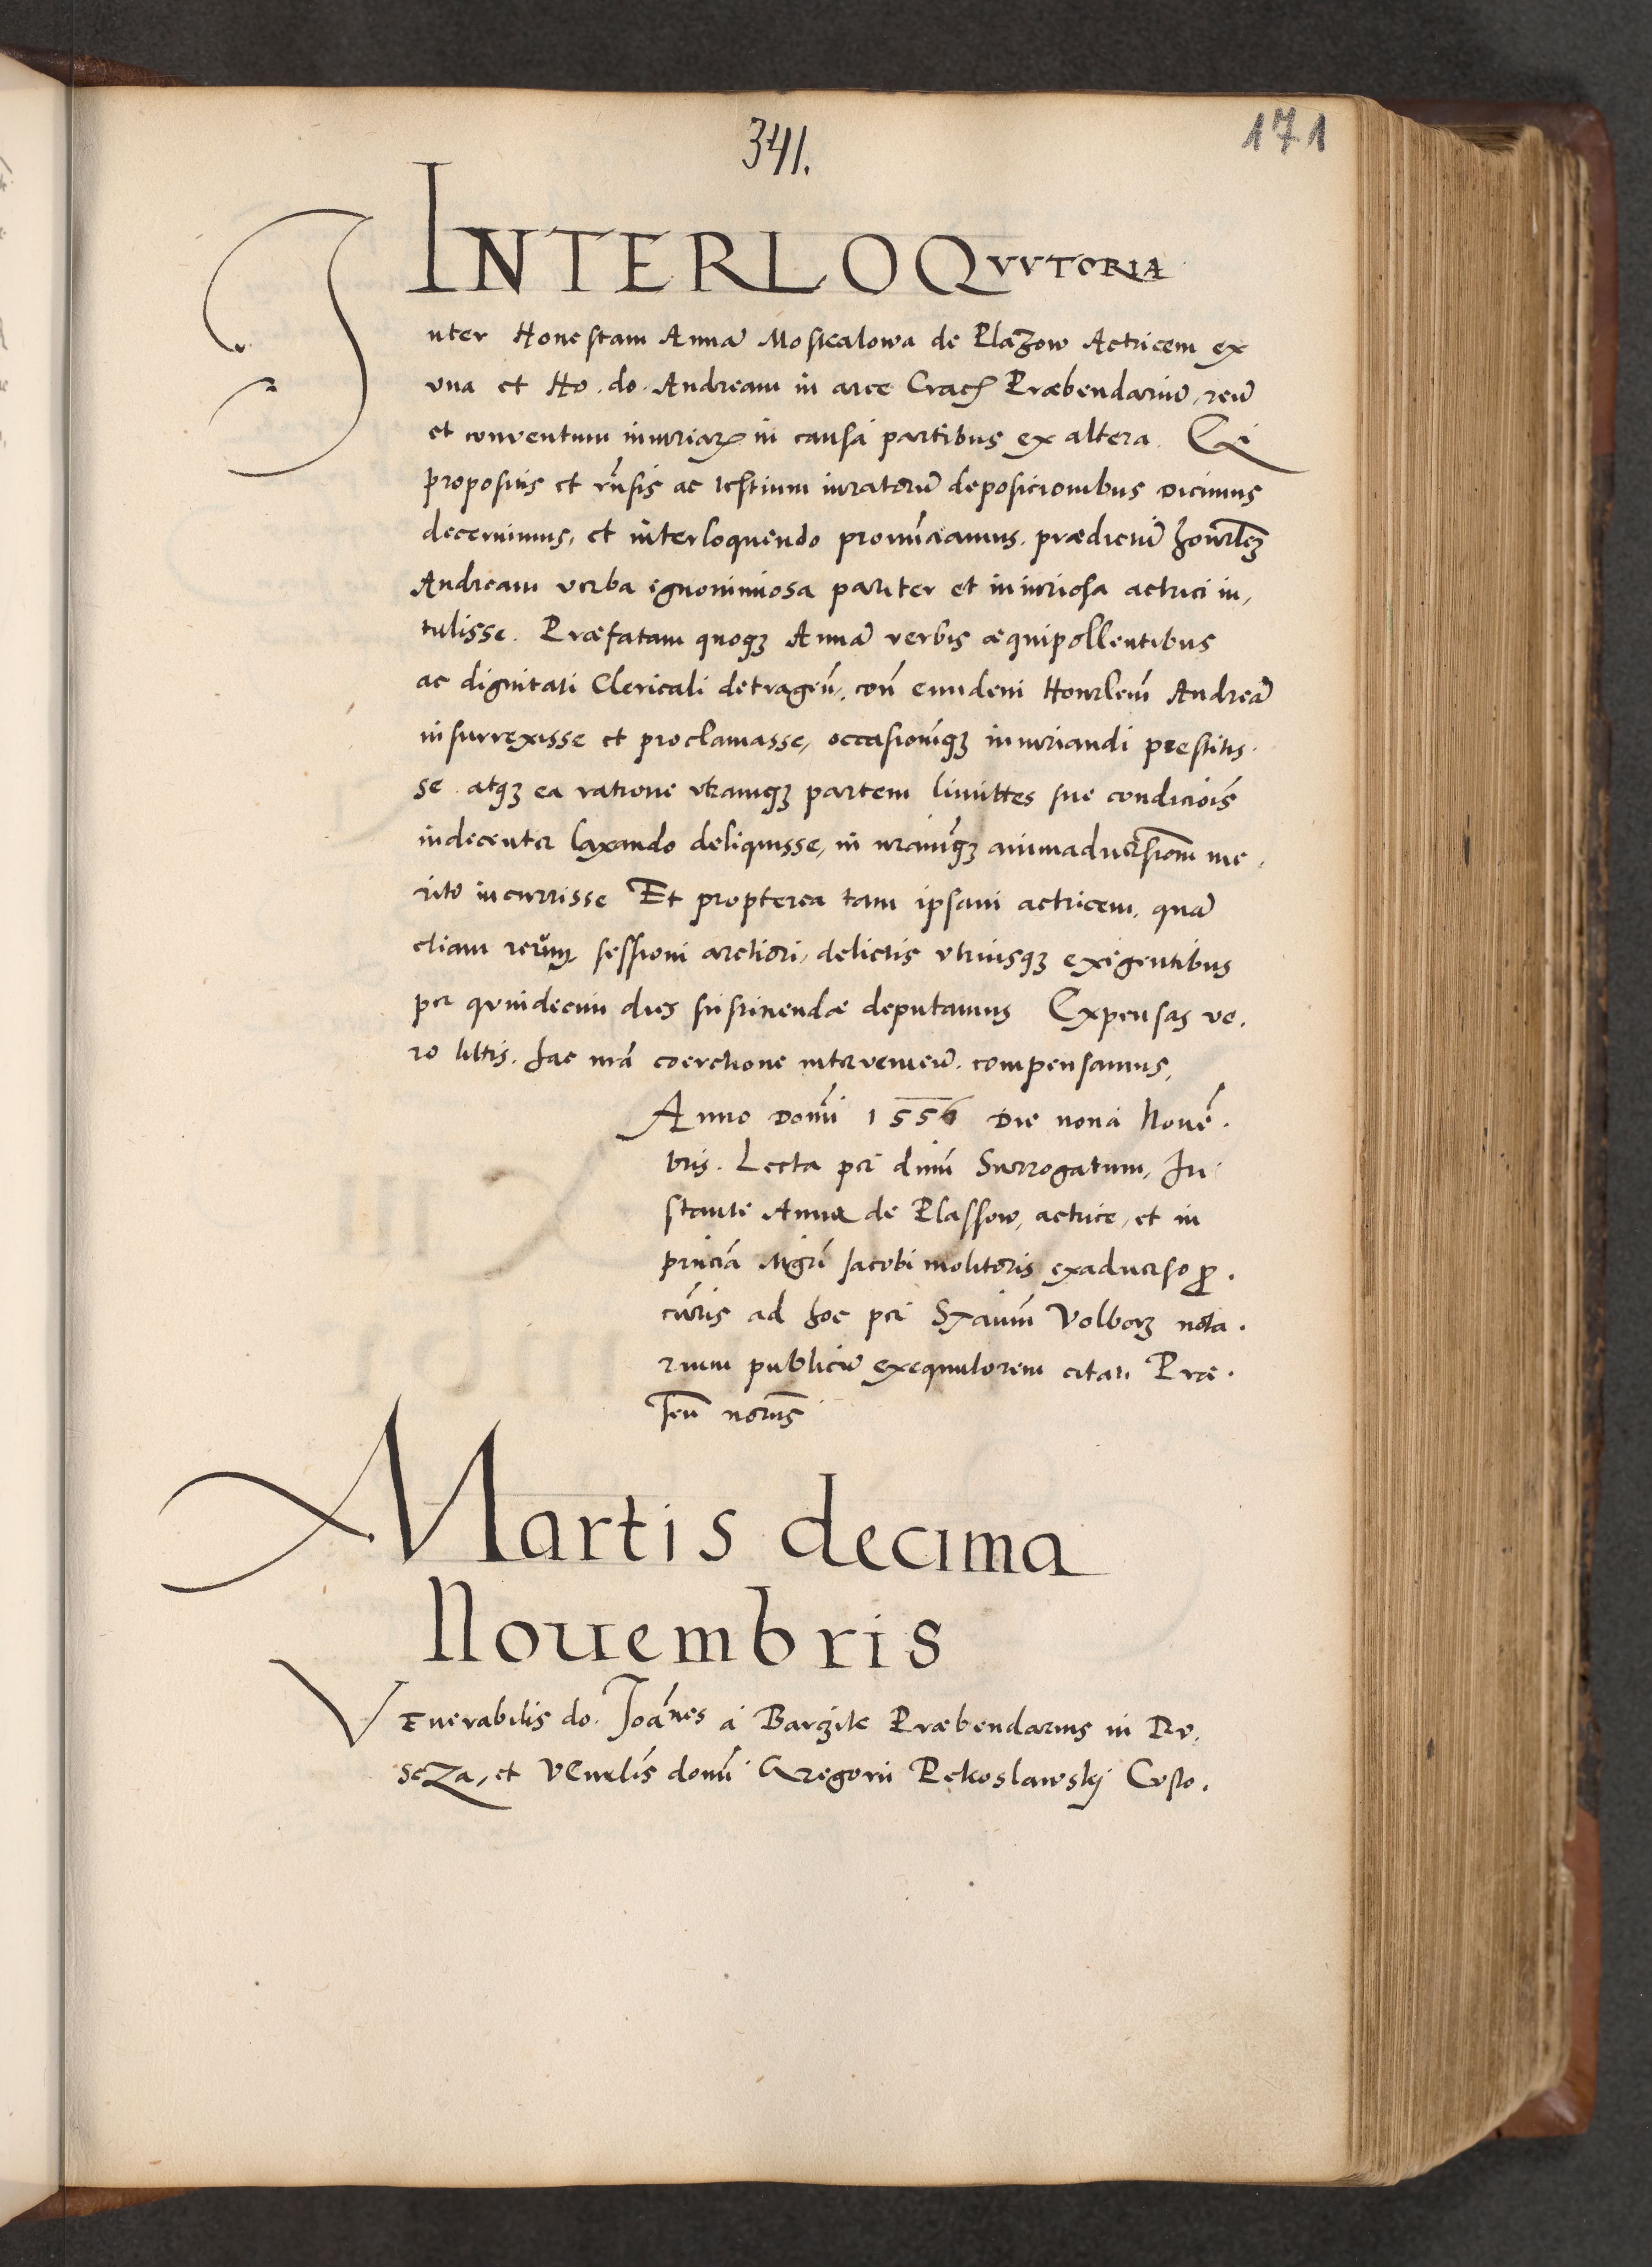 341.
171
INTERLOQVVTORIA
Inter Honestam Annā Mostcalowa de Plaʒow Actricem ex
vna et Ho. do. Andream in arce Cracȝ Præbendariū, reū
et conventum iniuriarꝝ in causa partibus ex altera. Ex
propositis et rn̄sis ac testium iuratorū deposicionibus Dicimus
decernimus, et interloquendo pronūciamus. prædictū honrleꝫ
Andream verba ignominiosa pariter et iniuriosa actrici in,
tulisse. Præfatam quoqꝫ Annā verbis æquipollentibus
ac dignitati Clericali detragēn, con̄ eundem Honrlem̄ Andreā
insurrexisse et proclamasse, occasionēqꝫ iniuriandi prestitis.
se. atqꝫ ea ratione vtramqꝫ partem limittes sue condicio͞is
indecenter laxando deliquisse, in nramqꝫ animaduersio͞nm me,
rito incurrisse Et propterea tam ipsam actricem, quā
etiam reum sessioni arctiori, delictis vtriusqꝫ exigentibus
per quindecim dies sustinendæ deputamus Expensas ve.
ro littis. hac nr̄a coerctione interveniēn. compensamus,
Anno Domi̅ 1556 Die nona Nouē.
bris. Lecta per dn̄um Surrogatum, In
stante Anna de Plassow, actrice, et in
pn̄cia Mgr̄i Jacobi molitoris exaduerso ꝓ.
cūris ad hoc per Sxaium̄ Volborꝫ nota.
rium publicū exequutorem citati Præ.
sen̄ no͞ris
Martis decima
Nouembris
Venerabilis do. Joānes a Barʒile Præbendarius in Re.
seza, et Venelis̄ domi̅ Gregorii Rekoslawskj Custo.